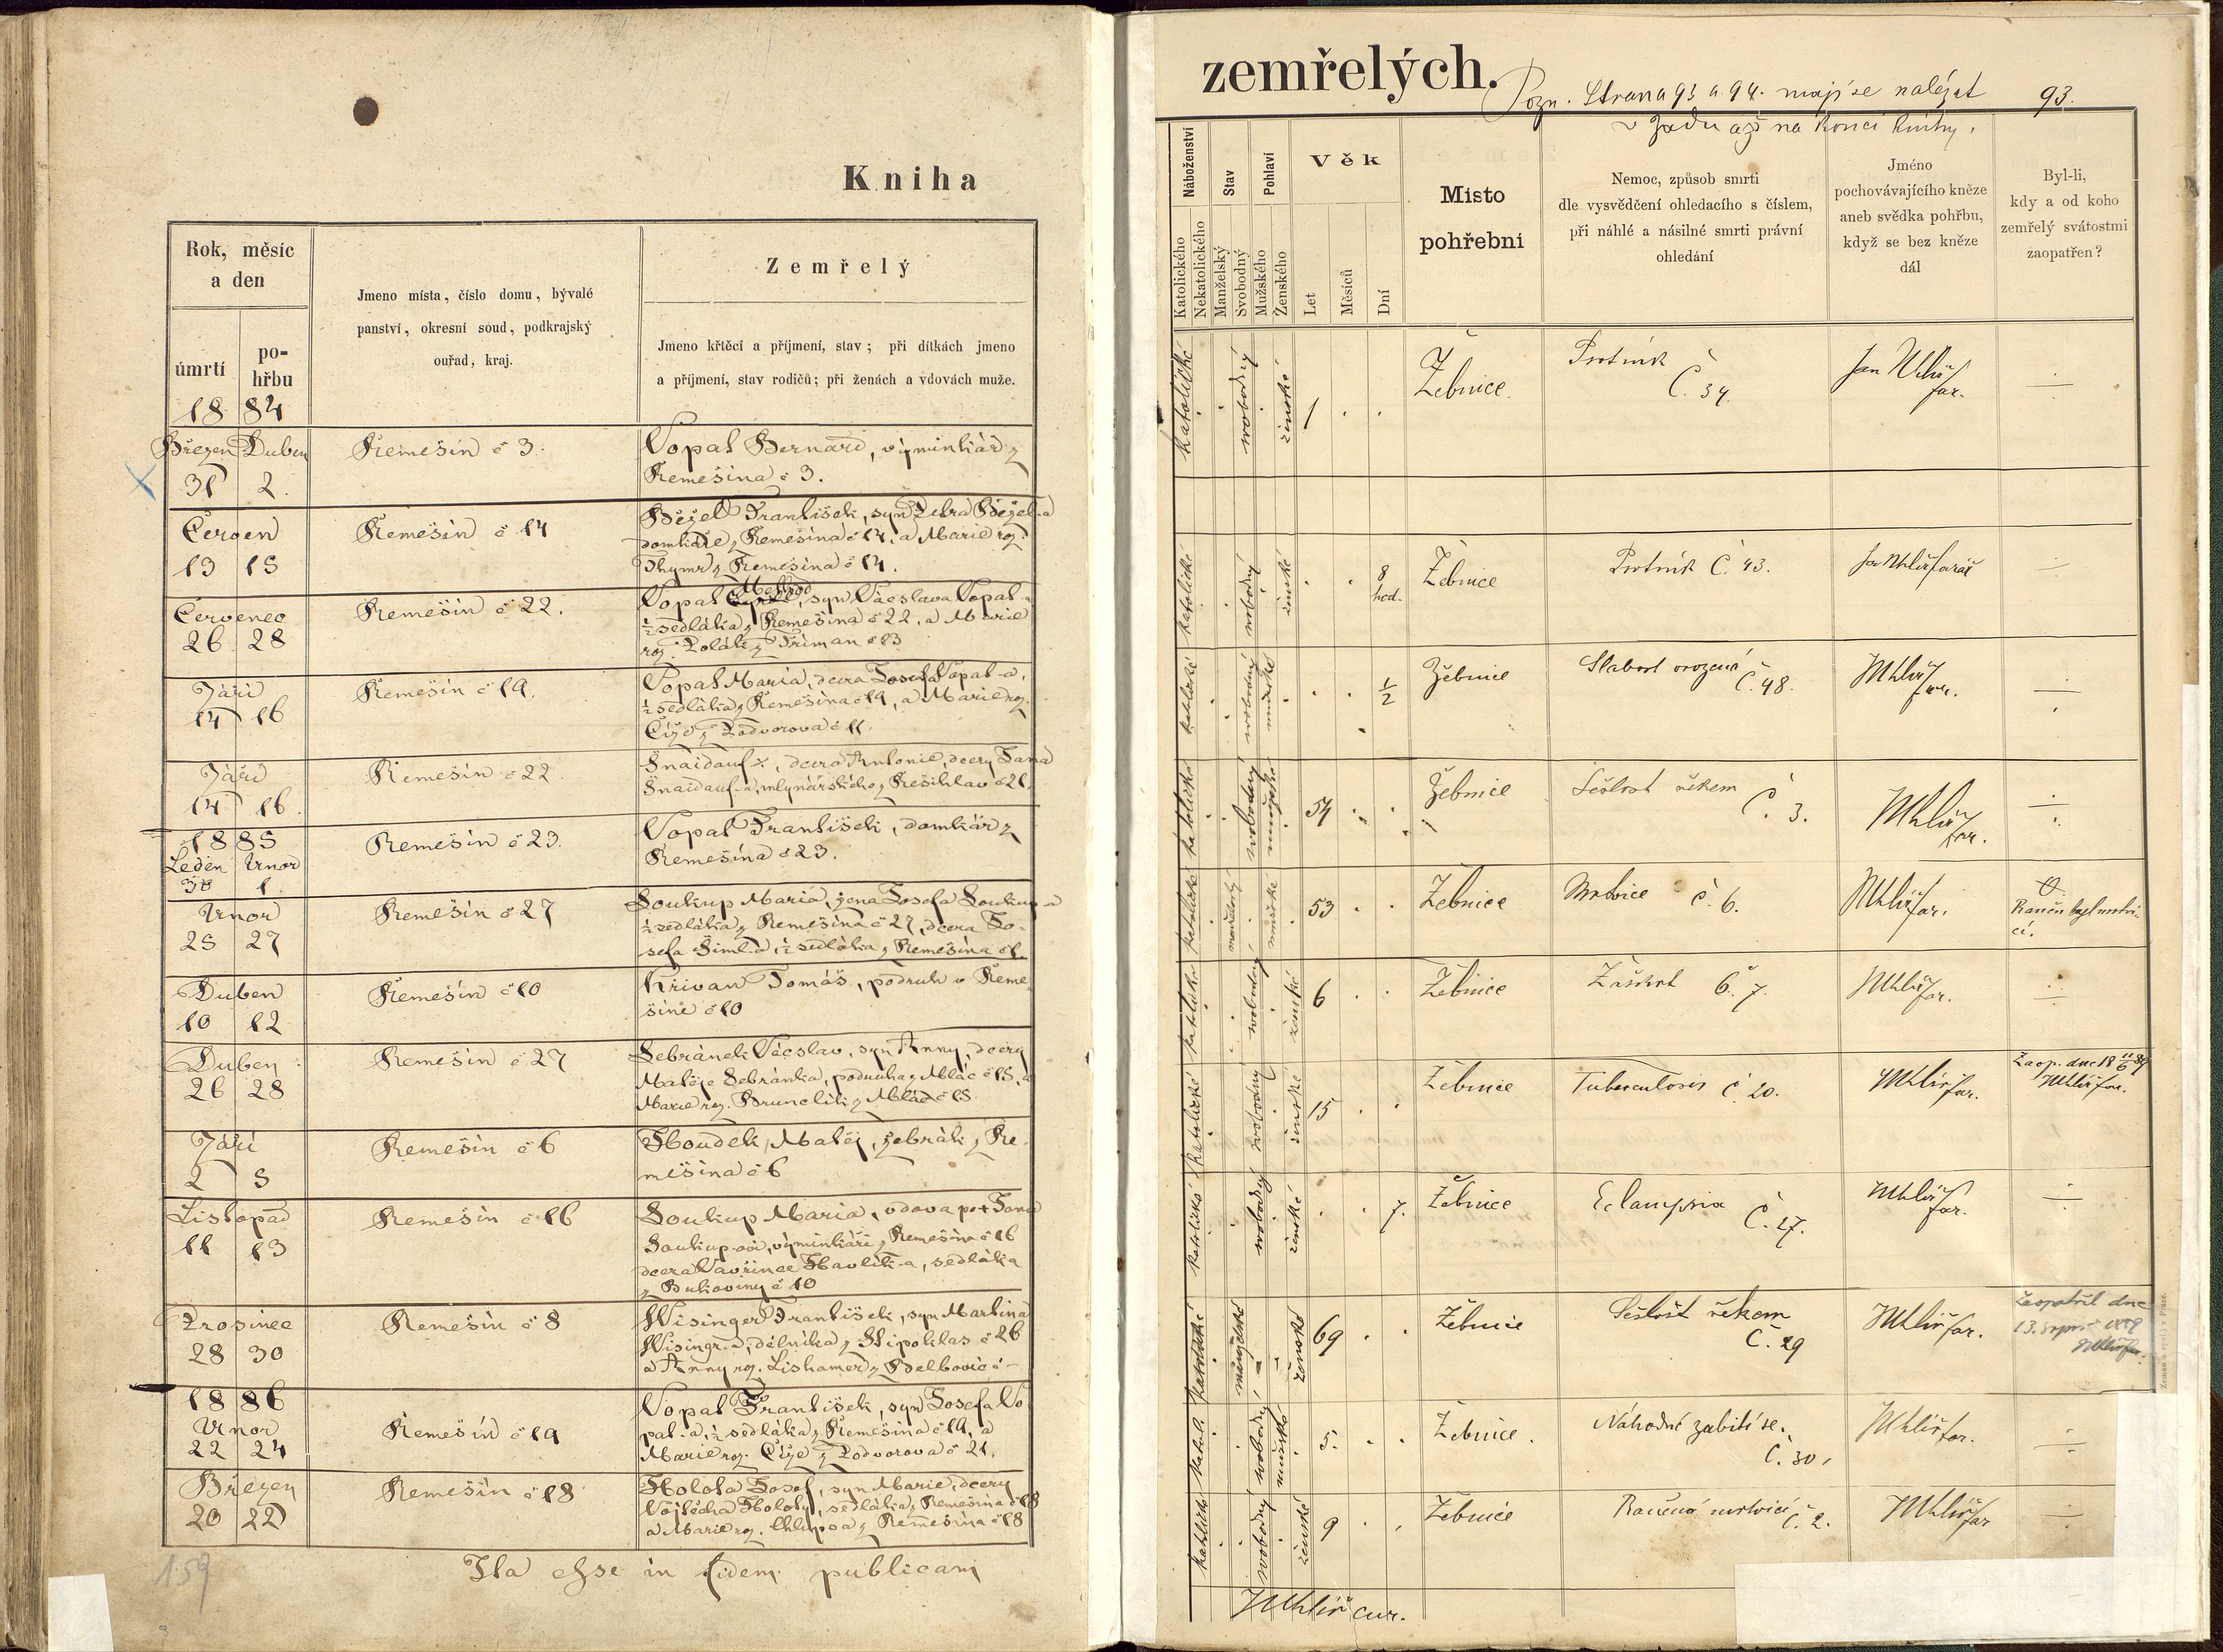 Kniha
Rok, měsíc
a den
úmrtí
po-
hřbu
Jmeno místa, číslo domu, bývalé
panství, okresní soud, podkrajský
ouřad, kraj.
Zemřelý
Jmeno křtěcí a příjmení, stav; při dítkách jmeno
a příjmení, stav rodičů; při ženách a vdovách muže.
18 84
Březen Duben
31 2.
Řemešín č 3.
Vopat Bernard, výminkář z
Řemešína č 3.
Červen
13 15
Řemešín č 14
František, syn
z Řemešína č 14, a Marie roz.
z Řemešína č 14.
Červenec
26 28
Řemešín č 22.
Vopat Metoděj, syn Vácslava Vopat-a
½ sedláka z Řemešína č 22, a Marie
roz. Polák z Příman č 13
Září
14 16
Řemešín č 19.
Vopat Maria, dcera Josefa Vopat-a,
½ sedláka z Řemešína č 19, a Marie roz.
Číže z Podvorova č 11.
Září
14 16
Řemešín č 22.
Šnaidauf, dcera Antonie, dcery Jana
Šnaidauf-a, mlynářského z č 21.
1885
Leden Unor
30 1
Řemešín č 23.
Vopat František, domkár z
Řemešína č 23.
Unor
25 27
Řemešín č 27
Soukup Maria, žena Josefa Soukup-a
½ sedláka z Řemešína č 27, dcera Jo-
sefa Šiml-a, ½ sedláka z Řemešína č 1.
Duben
10 12
Řemešín č 10
Křivan Tomáš, podruh v Řeme-
šíně č 10
Duben
26 28
Řemešín č 27
Sebránek Vácslav, syn Anny, dcery
Matěje Sebránka, podruha z Mlác č 15, a
Marie roz. Brunclík z Mlác č 15.
Září
2 5
Řemešín č 6
Houdek Matěj, žebrák z Ře-
mešína č 6
Listopad
11 13
Řemešín č 16
Soukup Maria, vdova po + Janu
Soukup-ovi, výminkáři z Řemešína č 16
dcera Vavřince Havlík-a, sedláka
z Bukoviny č 10
Prosinec
28 30
Řemešín č 8
Wisinger František, syn Martina
Wisingr-a, dělníka z Hipoklas č 26
a Anny roz. Lishamer z
1886
Unor
22 24
Řemešín č 19
Vopat František, syn Josefa Vo-
pat-a, ½ sedláka z Řemešína č 19, a
Marie roz. Číže z Podvorova č 21.
Březen
20 22
Řemešín č 18
Holota Josef, syn Marie, dcery
Vojtěcha Holoty, sedláka z Řemešína č 18
a Marie roz. z Řemešína č 18
159
Ita esse in fidem publicam
zemřelých.
Pozn. Strana 93 a 94. mají se nalézat 93.
v zadu až na konci knihy.
Náboženství
Stav
Pohlaví
Věk
Katolického
Nekatolického
Manželský
Svobodný
Mužského
Ženského
Let
Měsíců
Dní
Místo
pohřební
Nemoc, způsob smrti
dle vysvědčení ohledacího s číslem,
při náhlé a násilné smrti právní
ohledání
Jméno
pochovávajícího kněze
aneb svědka pohřbu,
když se bez kněze
dál
Byl-li,
kdy a od koho
zemřelý svátostmi
zaopatřen?
katolické svobodný ženské 1 Žebnice. Psotník Č. 34. Jan Uhlíř far.
katolické svobodný ženské 8 hod. Žebnice Psotník Č. 43. Jan Uhlíř farář
katolické svobodný mužské ½ Žebnice Slabost vrozená Č. 48. JUhlíř far.
katolické svobodný mužské 54 Žebnice Sešlost věkem Č. 3. JUhlíř far.
katolické manželský mužské 53 Žebnice Mrtvice č. 6. JUhlíř far. Raněn byl mrtvi-
cí.
katolické svobodný ženské 6 Žebnice Záškrt č. 7. JUhlíř far.
katolické svobodný ženské 15 Žebnice Tuberculosis č 20. JUhlíř far. Zaop. dne 18 11/6 89
JUhlíř far.
katolické svobodný ženské 7. Žebnice Eclampsia Č. 27. JUhlíř far.
katolické manželské ženské 69 Žebnice Sešlost věkem Č. 29 JUhlíř far. Zaopatřil dne
13. srpna 1889
JUhlíř far.
katol. svobodný mužské 5. Žebnice. Náhodné zabití se. Č. 30. JUhlíř far.
katolické svobodný ženské 9 Žebnice Raněna mrtvicí č. 2. JUhlíř far
JUhlíř cur.